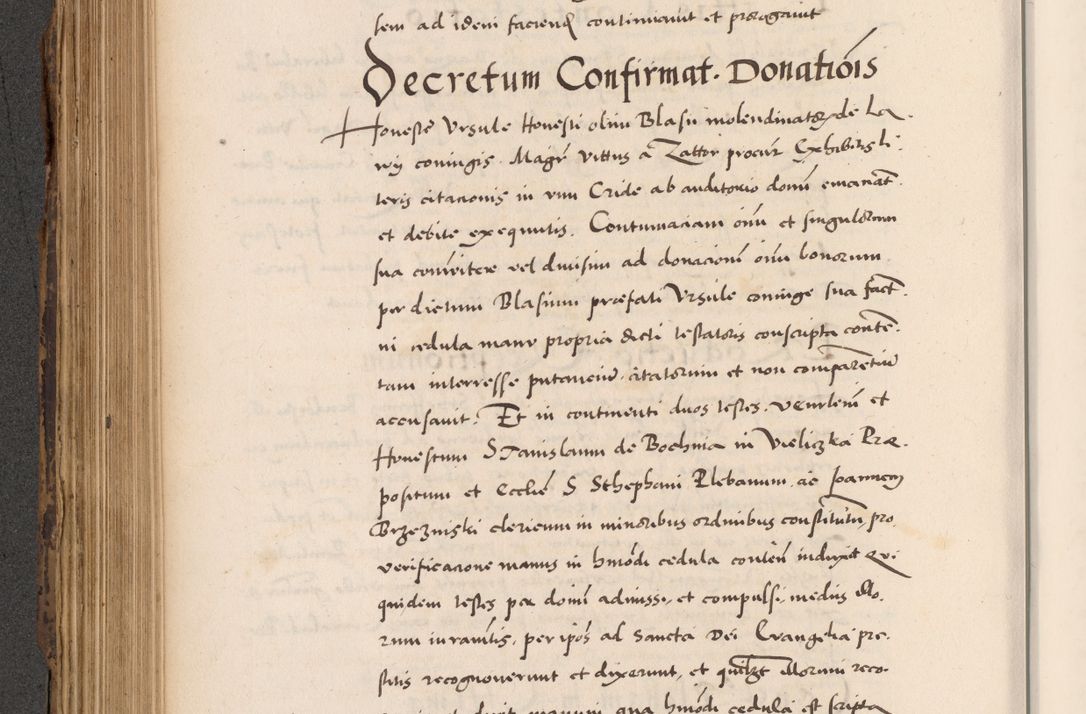 sem ad idem faciend continuavit et prorogavit
Decretum Confirmat. Donationis
Honeste Ursule Honesti olim Blasii molendinatorx de La
wy coniugis Magr Vittus a Zattor procur Exhibitis li
teris citacionis in vim Cride ab auditorio domi emanat
et debite exequutis. Contumaciam oim et singulorum
sua comitere vel divisim ad donacionem oim bonorum
per dictum Blasium præfati Ursule coniuge sua fact
in cedula manu propria dicti testatoris conscripta conte
tam interresse putancium citatorum et non comparentium
accusavit. Et in continenti duos testes. Venrlem et
Honestum Stanislaum de Bochnia in Vieliczka Præ
positum et Ecclie S Sthephani Plebanum ac Joannem
Brzezniski clericum in minoribus ordinibus constitutum, pro
verificacione manus in hmodi cedula conten induxit Qui
quidem testes per dom admissi, et compulsi, mediis illo
rum iuramtis, per ipos ad Sancta Dei Evangelia pre
stitis recognoverunt et dixerunt, et quilzt illorum reco
manum qua hmodi cedula est scripta